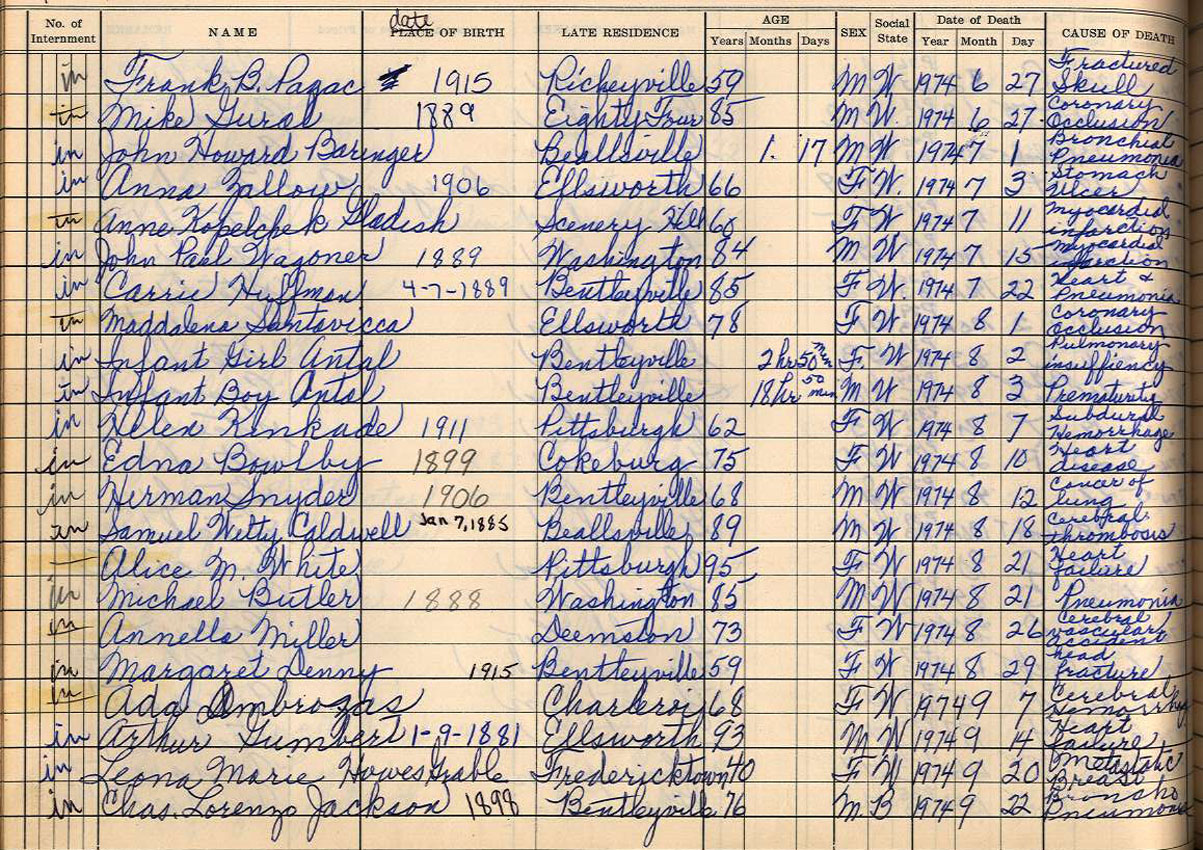 No. of Internment NAME date PLACE OF BIRTH LATE RESIDENCE AGE Years Months Days SEX Social State Date of Death Year Month Day CAUSE OF DEATH
in Frank B. Pazac 1915 Richeyville 59 M W 1974 6 27 Fractured Skull
in Mike Gural 1889 Eighty Four 85 M W. 1974 6 27 Coronary Occlusion
in John Howard Baringer Beallsville 1. 17 M W 1974 7 1 Bronchial Pneumonia
in Anna Zallow 1906 Ellsworth 66 F W. 1974 7 3 Stomach Ulcer
in Anne Kopelchek Gladish Scenery Hill F W 1974 7 11 Myocardial infarction
in John Paul Wagoner 1889 Washington 84 M W 1974 7 15 Myocardial
in Carrie Huffman 4-7-1889 Bentleyville 85 F W. 1974 7 22 Heart & Pneumonia
in Maddalena Santavicca Ellsworth 78 F W 1974 8 1 Coronary Occlusion
in Infant Girl Antal Bentleyville 2 hr 50 min F. W 1974 8 2 Pulmonary insuffiency
in Infant Boy Antal Bentleyville 18 hr 50 min M W 1974 8 3 Prematurity
in Helen Kinkade 1911 Pittsburgh 62 F W 1974 8 7 Subdural Hemorrhage
in Edna Bowlby 1899 Cokeburg 75 F W 1974 8 10 Heart disease
in Herman Snyder 1906 Bentleyville 68 M W 1974 8 12 Cancer of lung
in Samuel Witty Caldwell Jan 7, 1885 Beallsville 89 M W 1974 8 18 Cerebral thrombosis
Alice M. White Pittsburgh 95 F W 1974 8 21 Heart failure
in Michael Butler 1888 Washington 85 M W 1974 8 21 Pneumonia
in Annella Miller Deemston 73 F W 1974 8 26 Cerebral vascular accident
in Margaret Denny 1915 Bentleyville 59 F W 1974 8 29 head fracture
in Ada Ambrozas Charleroi 68 F W 1974 9 7 Cerebral
in Arthur Gumbert 1-9-1881 Ellsworth 93 M W 1974 9 14 Heart failure
in Leona Marie Howes Grable Fredericktown 40 F W 1974 9 20 Metastatic Breast
in Chas. Lorenzo Jackson 1898 Bentleyville 76 M. B 1974 9 22 Broncho Pneumonia